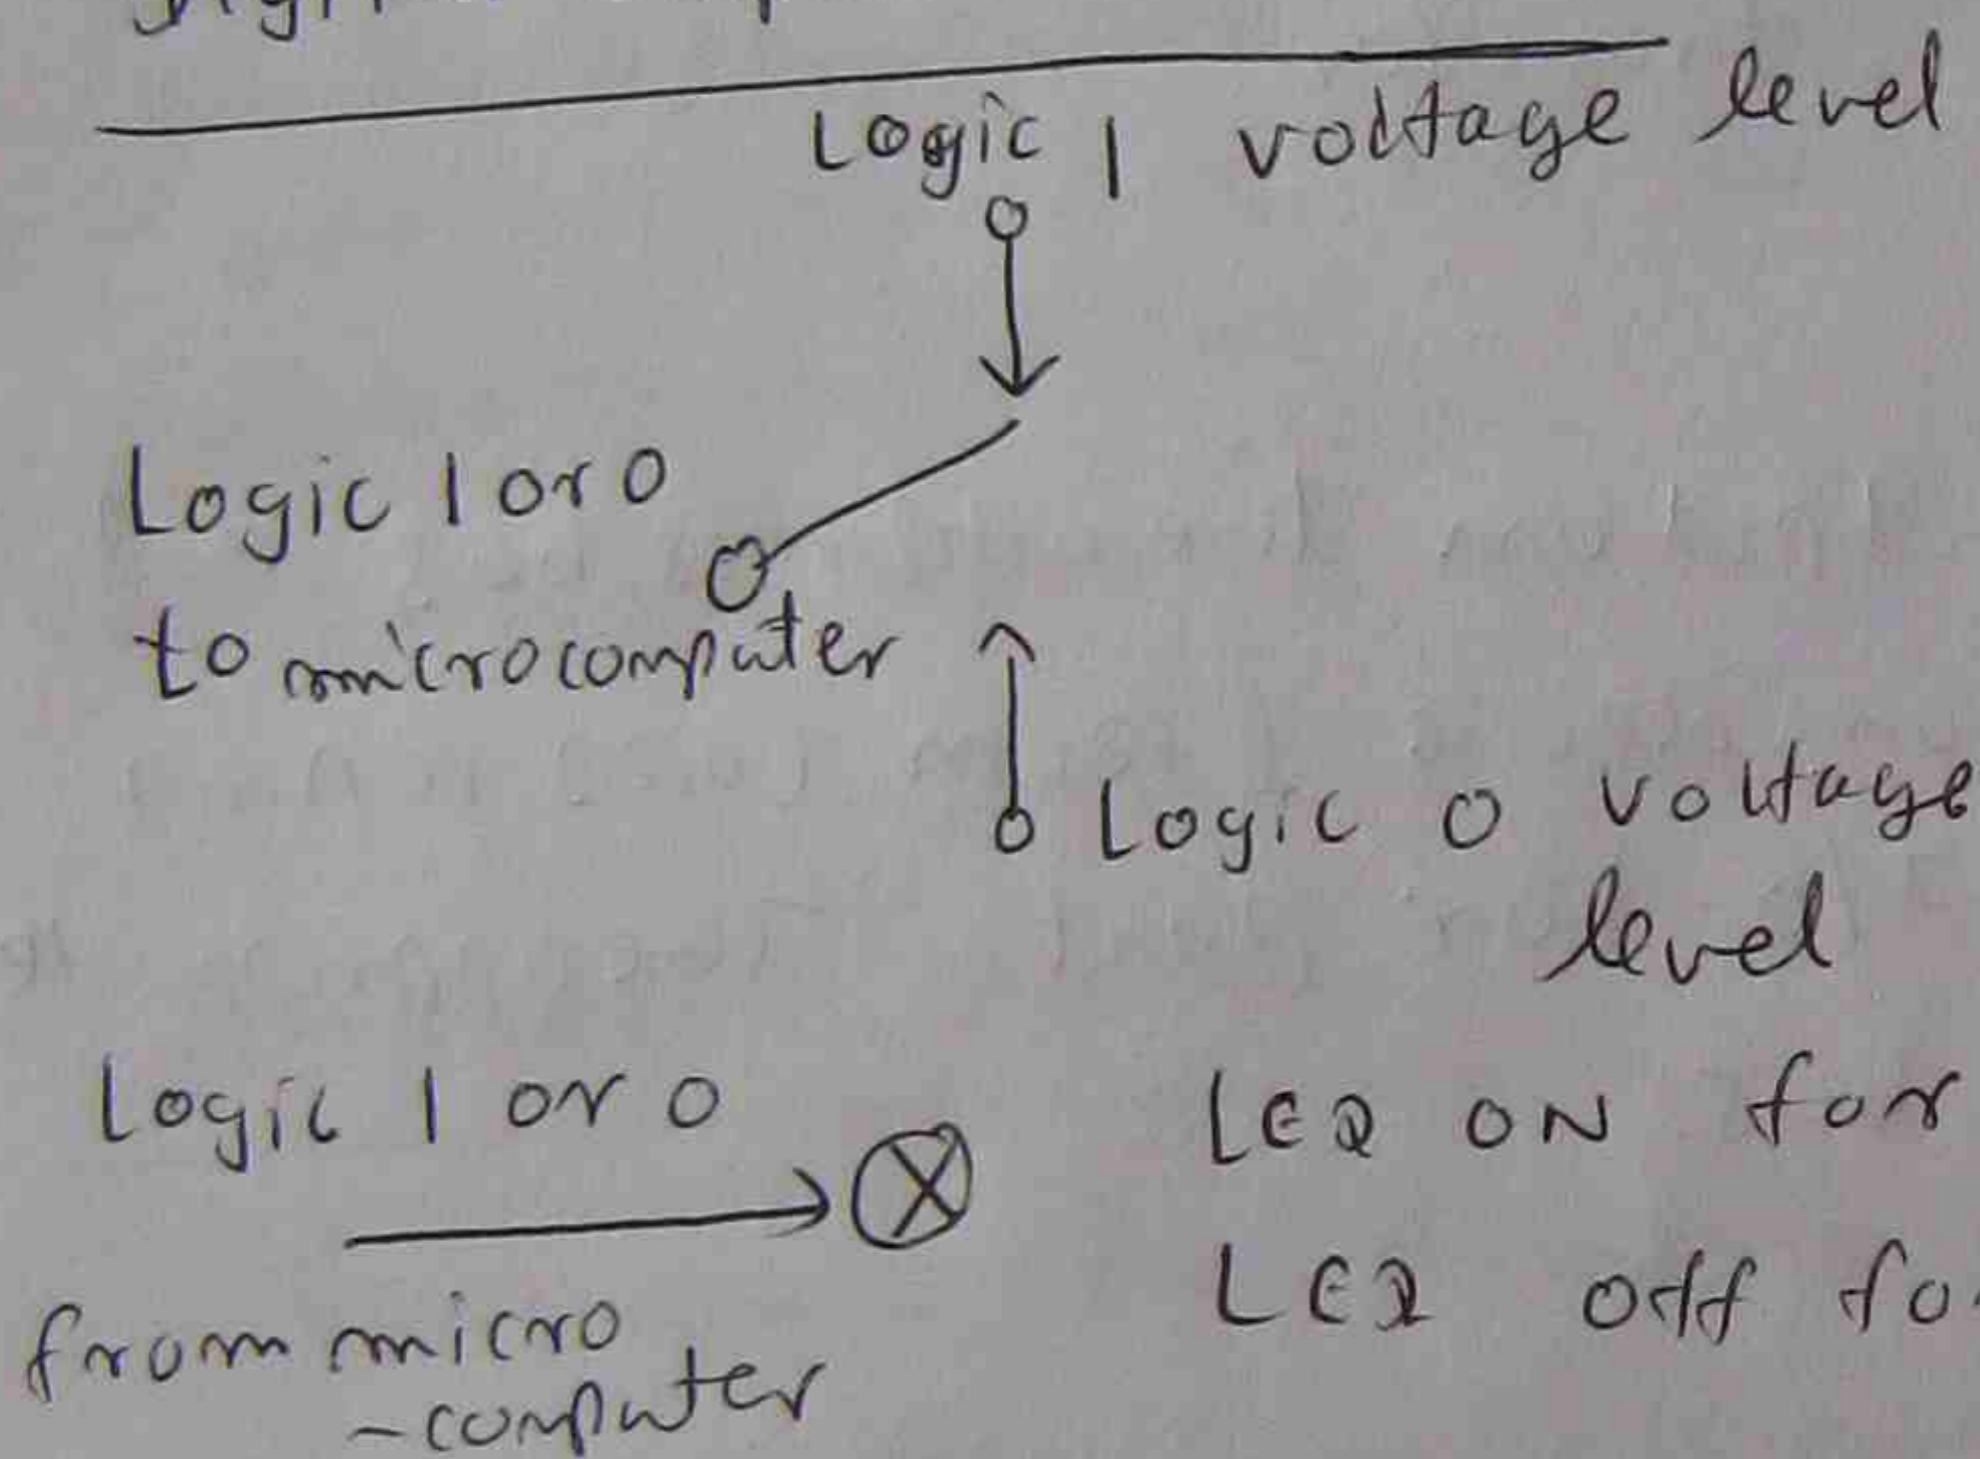 Digital
Logic 1 voltage level
Logic 1 or 0
to microcomputer
Logic 0 voltage
level
Logic 1 or 0
from micro
-computer
LED ON for
LED off fo